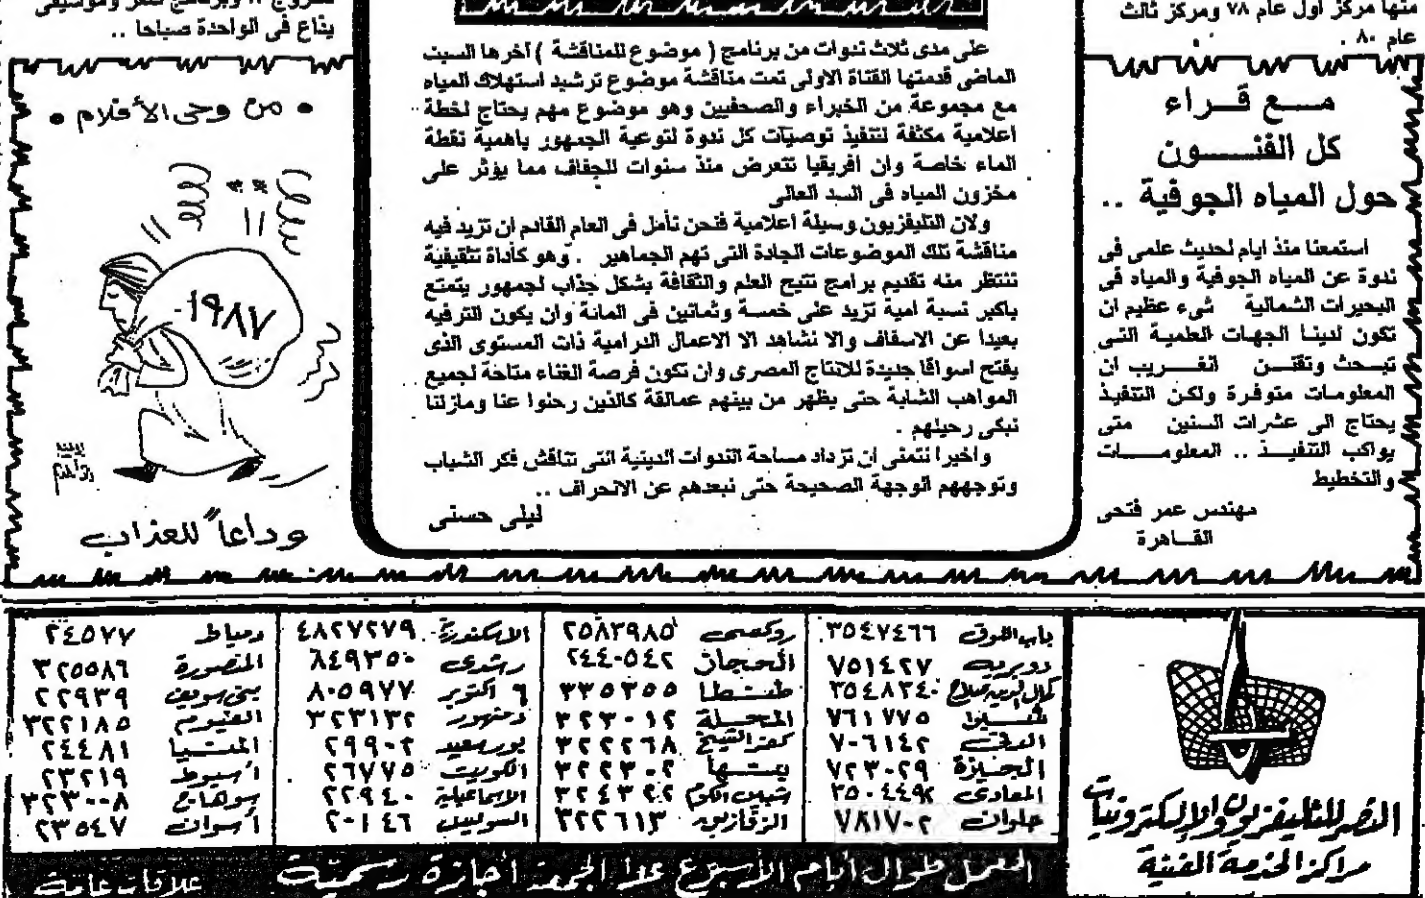 منها مركز أول عام ٧٨ ومركز ثالث
عام ٨٠ .
مـع قـراء
كل الفنـــون
حول المياه الجوفية ..
استمعنا منذ ايام لحديث علمى فى
ندوة عن المياه الجوفية والمياه فى
البحيرات الشمالية شىء عظيم ان
تكون لدينا الجهات العلمية التى
تبحث وتقنن الغريب ان
المعلومات متوفرة ولكن التنفيذ
يحتاج الى عشرات السنين متى
يواكب التنفيذ .. المعلومات
والتخطيط
مهندس عمر فتحى
القاهرة
على مدى ثلاث ندوات من برنامج ( موضوع للمناقشة ) أخرها السبت
الماضى قدمتها القناة الاولى تمت مناقشة موضوع ترشيد استهلاك المياه
مع مجموعة من الخبراء والصحفيين وهو موضوع مهم يحتاج لخطة
اعلامية مكثفة لتنفيذ توصيات كل ندوة لتوعية الجمهور باهمية نقطة
الماء خاصة وان افريقيا تتعرض منذ سنوات للجفاف مما يؤثر على
مخزون المياه فى السد العالى
ولان التليفزيون وسيلة اعلامية فنحن نأمل فى العام القادم ان تزيد فيه
مناقشة تلك الموضوعات الجادة التى تهم الجماهير . وهو كأداة تثقيفية
ننتظر منه تقديم برامج تتيح العلم والثقافة بشكل جذاب لجمهور يتمتع
باكبر نسبة امية تزيد على خمسة وثمانين فى المائة وان يكون الترفيه
بعيدا عن الاسفاف والا نشاهد الا الاعمال الدرامية ذات المستوى الذى
يفتح اسواقا جديدة للانتاج المصرى وان تكون فرصة الغناء متاحة لجميع
المواهب الشابة حتى يظهر من بينهم عمالقة كالذين رحلوا عنا ومازلنا
نبكى رحيلهم .
واخيرا نتمنى ان تزداد مساحة الندوات الدينية التى تناقش فكر الشباب
وتوجههم الوجهة الصحيحة حتى نبعدهم عن الانحراف ..
ليلى حسنى
يذاع فى الواحدة صباحا ..
• من وحى الأفلام •
١٩٨٧
وداعاً للعذاب
النصر للتليفزيون والإلكترونيات
مراكز الخدمة الفنية
باب اللوق ٣٥٤٧٤٦٦
دوبريه ٧٥١٤٢٧
كمال الدين صلاح ٣٥٤٨٣٤٠
٧٦١٧٧٥
الدقى ٧٠٦١٤٢
الجيزة ٧٢٣٠٢٩
المعادى ٣٥٠٤٤٩٢
حلوان ٧٨١٧٠٢
روكسى ٢٥٨٣٩٨٥
الحجاز ٢٤٤٠٥٤٢
طنطا ٣٣٥٣٥٥
المحلة ٣٢٣٠١٢
كفر الشيخ ٣٢٢٢٦٨
بنها ٣٢٢٣٠٢
شبين الكوم ٣٢٤٣٢٢
الزقازيق ٣٢٢٦١٣
الاسكندرية ٤٨٢٧٢٧٩
رشدى ٨٤٩٣٥٠
٦ اكتوبر ٨٠٥٩٧٧
دمنهور ٣٢٣١٣٢
بورسعيد ٢٩٩٠٢
الكويت ٢٦٧٧٥
الاسماعيلية ٢٢٩٤٠
السويس ٢٠١٤٦
دمياط ٢٤٥٧٧
المنصورة ٣٢٥٥٨٦
بنى سويف ٢٢٩٣٩
الفيوم ٣٢٢١٨٥
المنيا ٢٤٤٨١
أسيوط ٢٣٢١٩
سوهاج ٣٢٣٠٠٨
أسوان ٢٣٥٤٧
العمل طوال أيام الأسبوع عدا الجمعة أجازة رسمية
علاقات عامة